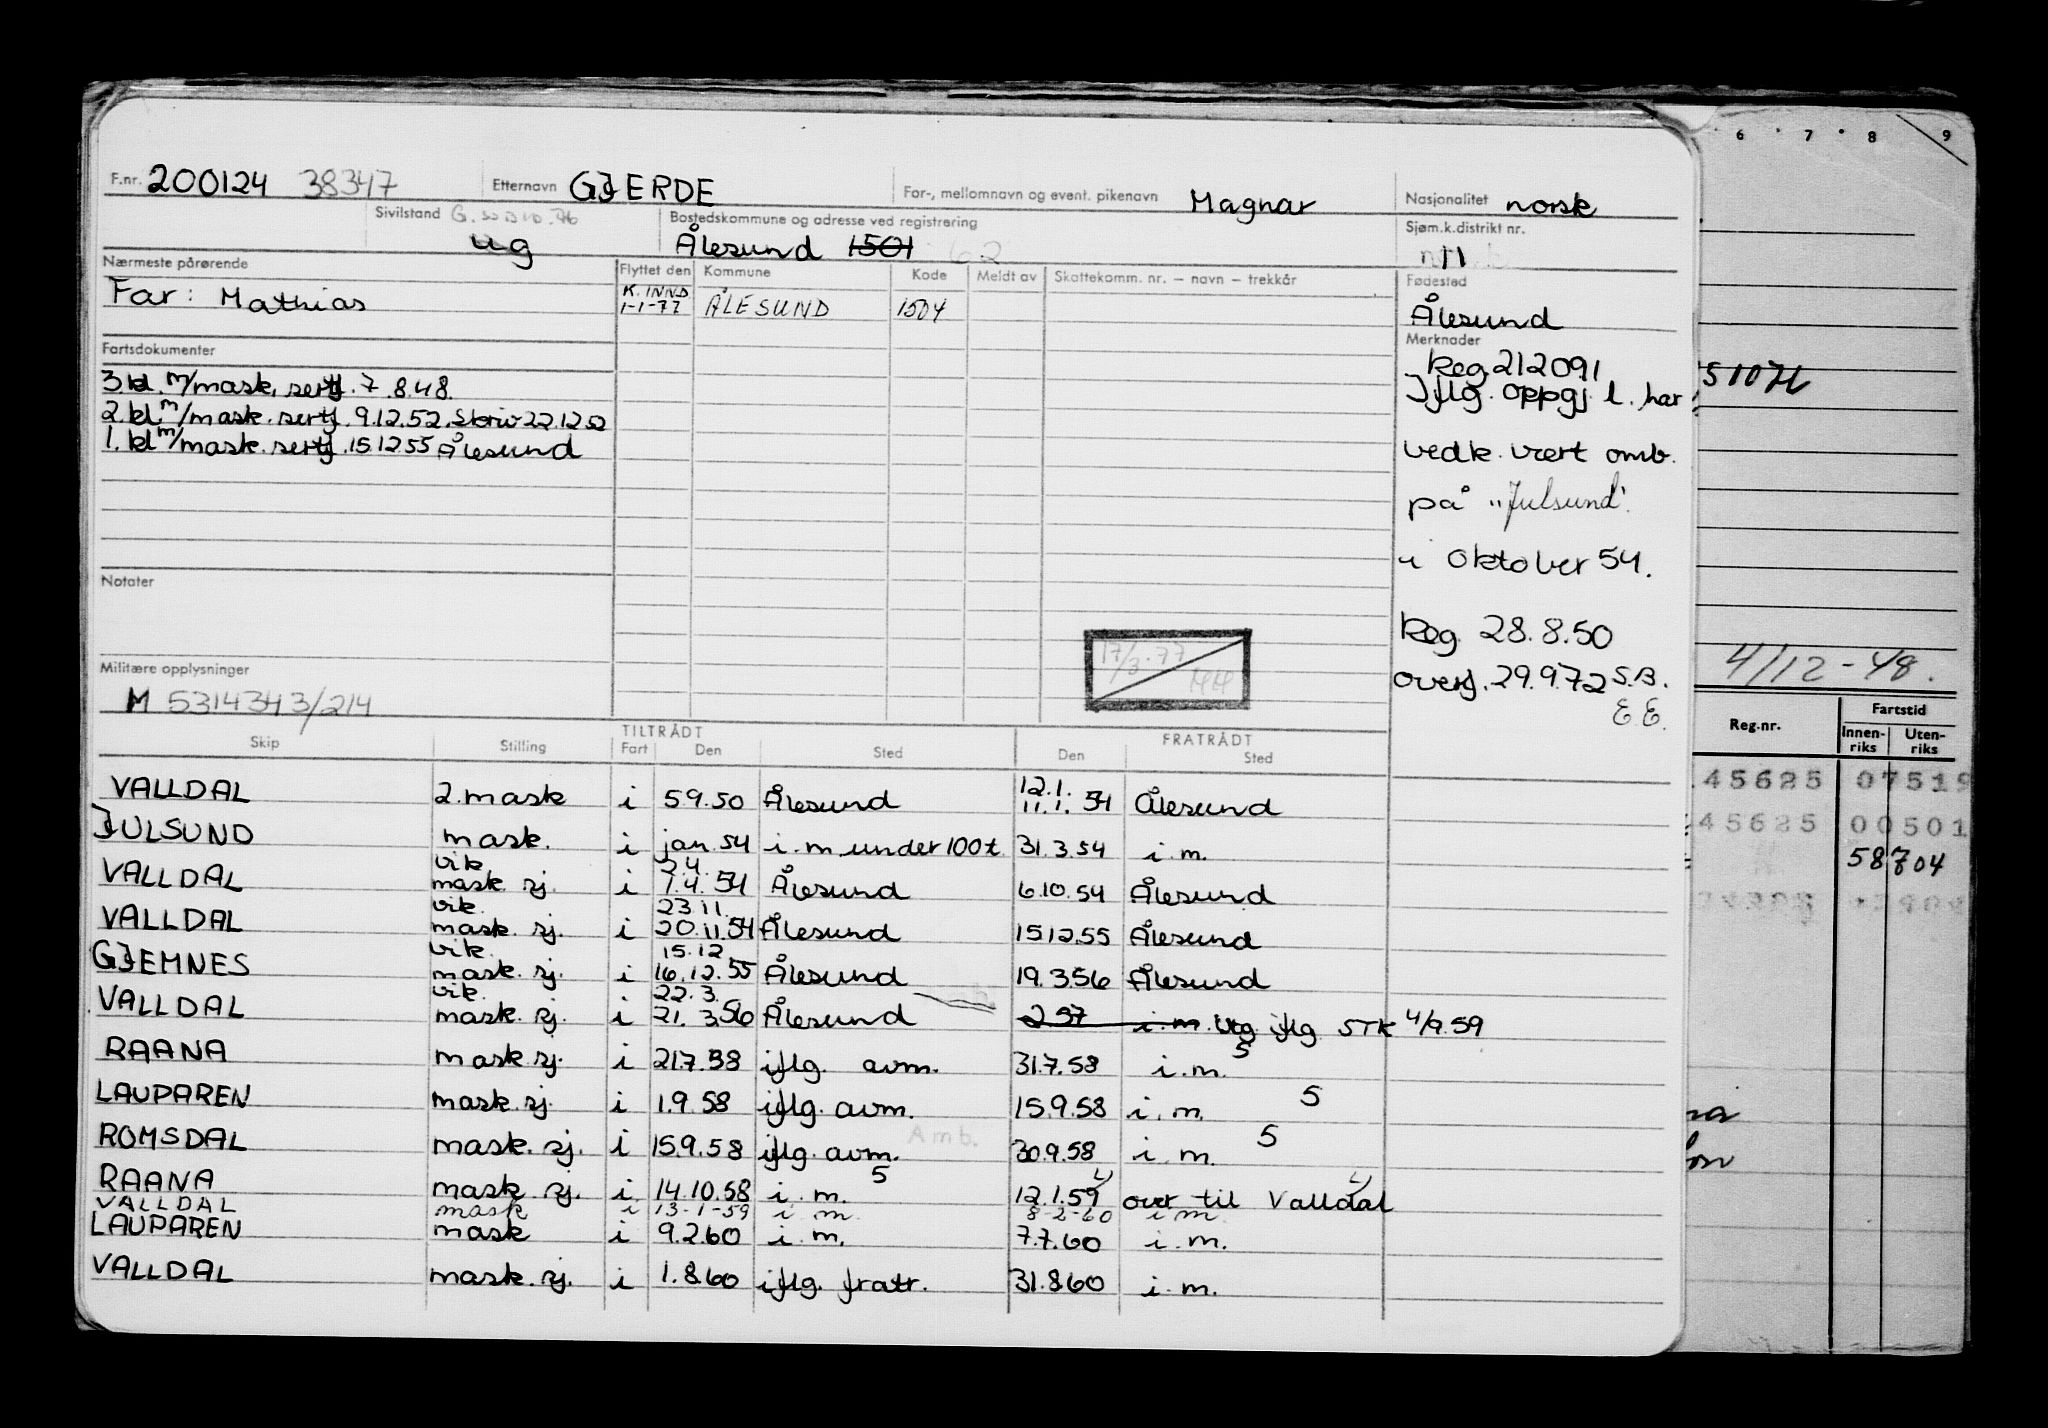 F.nr. 200124 38347 Etternavn GJERDE For-, mellomnavn og event. pikenavn Magnar Nasjonalitet norsk
Sivilstand ug Bostedskommune og adresse ved registrering Ålesund 1501 Sjøm.k.distrikt nr.
Nærmeste pårørende Flyttet den Kommune Kode Meldt av Skattekomm. nr. – navn – trekkår Fødested
Far: Mathias K. INND 1-1-77 ÅLESUND 1504 Ålesund
Fartsdokumenter Merknader
3. kl. m/mask. sertf. 7.8.48.
2. kl. m/mask. sertf. 9.12.52. Skriv 22.12.52
1. kl. m/mask. sertf. 15.12.55 Ålesund
Reg. 212091
Iflg. oppgj. l. har
vedk. vært omb.
på "Julsund"
i oktober 54.
Reg. 28.8.50
overf. 29.9.72 S.B.
E E.
Notater
17/3-77
Militære opplysninger
M 5314343/214
TILTRÅDT FRATRÅDT
Skip Stilling Fart Den Sted Den Sted
VALLDAL 2. mask i 5.9.50 Ålesund 12.1. 11.1.54 Ålesund
JULSUND mask. i jan. 54 i.m. under 100 t. 31.3.54 i.m.
VALLDAL vik. mask. sj. i 2.4. 7.4.54 Ålesund 6.10.54 Ålesund
VALLDAL vik. mask. sj. i 23.11. 20.11.54 Ålesund 15.12.55 Ålesund
GJEMNES vik. mask. sj. i 15.12. 16.12.55 Ålesund 19.3.56 Ålesund
VALLDAL vik. mask. sj. i 22.3. 21.3.56 Ålesund 2.57 i.m. Utg. iflg. STK 4/9.59
RAANA mask. sj. i 21.7.58 iflg. avm. 31.7.58 i.m. 5
LAUPAREN mask. sj. i 1.9.58 iflg. avm. 15.9.58 i.m. 5
ROMSDAL mask. sj. i 15.9.58 iflg. avm. Amb. 30.9.58 i.m. 5
RAANA mask. sj. i 14.10.58 i.m. 5 12.1.59 over til Valldal
VALLDAL mask i 13-1-59 i m 8-2-60 i m
LAUPAREN mask i 9.2.60 i.m. 7.7.60 i.m.
VALLDAL mask. sj. i 1.8.60 iflg. fratr. 31.8.60 i.m.
6 7 8 9
4/12-48.
Reg.nr. Fartstid
Innen-riks Uten-riks
45625 07519
45625 00501
58704